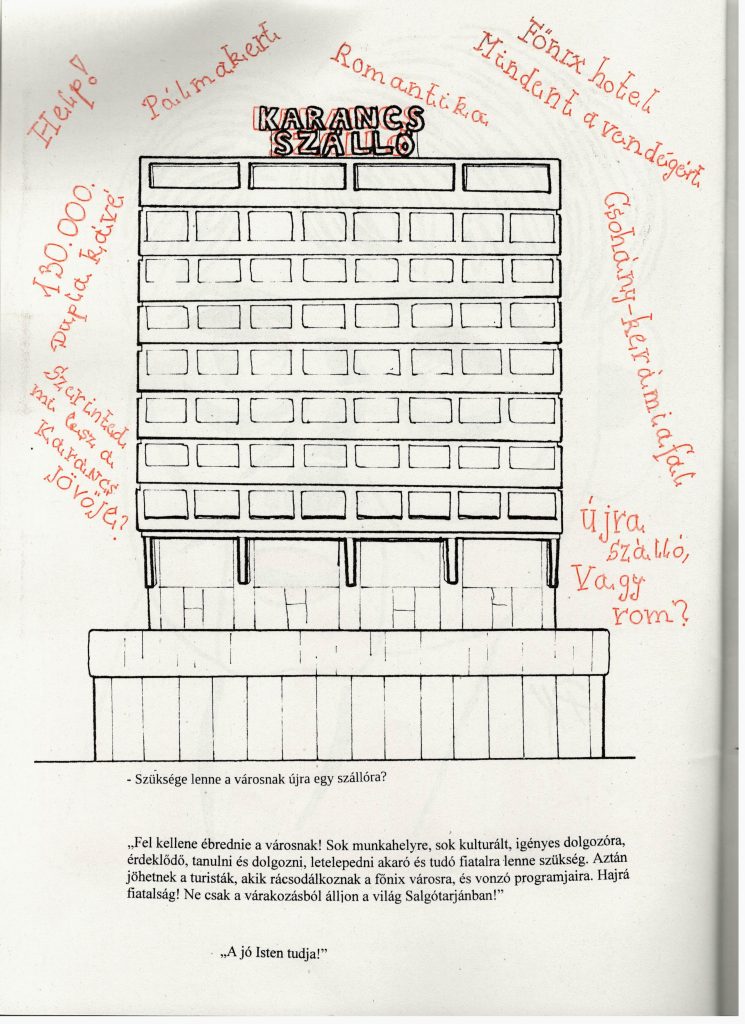 Help!
Pálmakert
Romantika
Főnix hotel
Mindent a vendégért
KARANCS
SZÁLLÓ
130.000.
Dupla kávé
Csohány-kerámiafal
Szerinted
mi lesz a
Karancs
jövője?
Újra
szálló,
Vagy
rom?
- Szüksége lenne a városnak újra egy szállóra?
„Fel kellene ébrednie a városnak! Sok munkahelyre, sok kulturált, igényes dolgozóra,
érdeklődő, tanulni és dolgozni, letelepedni akaró és tudó fiatalra lenne szükség. Aztán
jöhetnek a turisták, akik rácsodálkoznak a főnix városra, és vonzó programjaira. Hajrá
fiatalság! Ne csak a várakozásból álljon a világ Salgótarjánban!”
„A jó Isten tudja!”